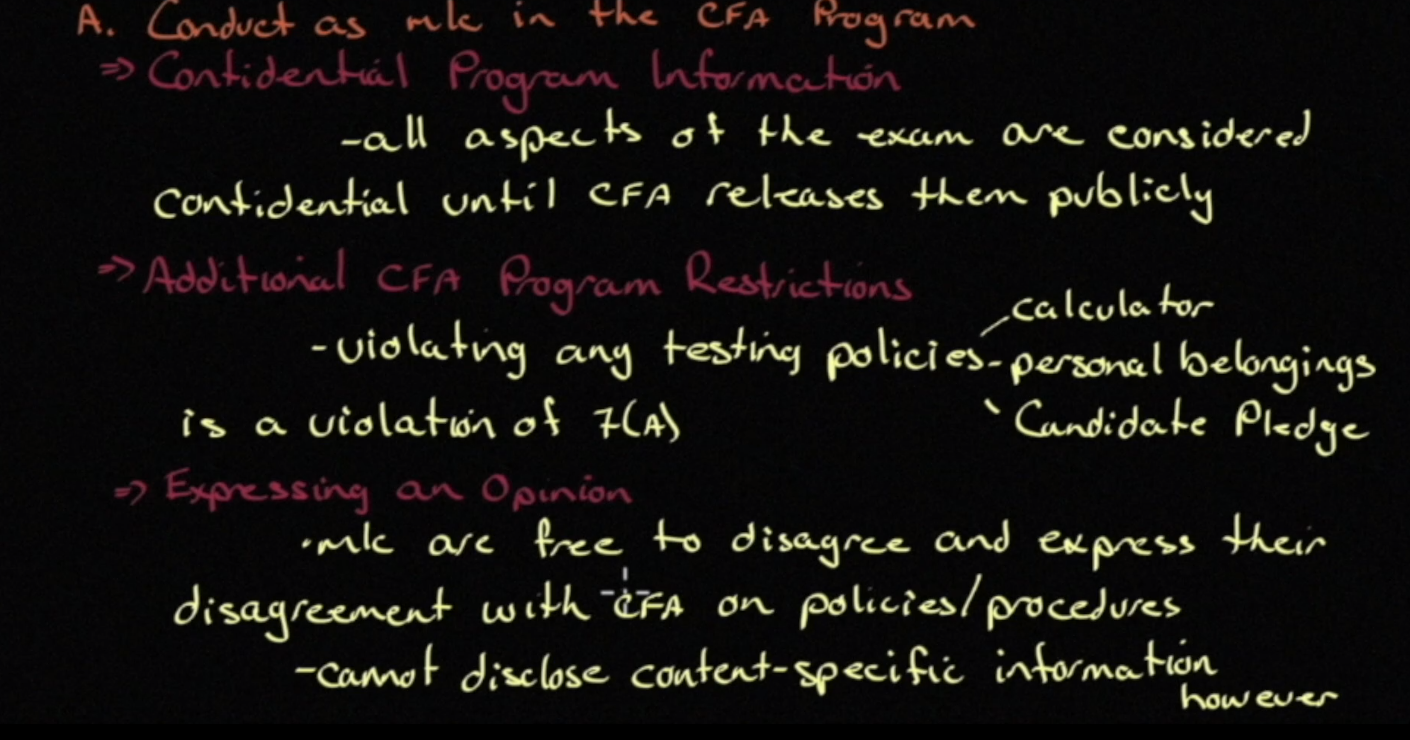 A. Conduct as m/c in the CFA Program
⇒ Confidential Program Information
-all aspects of the exam are considered
confidential until CFA releases them publicly
⇒ Additional CFA Program Restrictions
calculator
-violating any testing policies - personal belongings
is a violation of 7(A) ` Candidate Pledge
⇒ Expressing an Opinion
·m/c are free to disagree and express their
disagreement with CFA on policies/procedures
-cannot disclose content-specific information
however